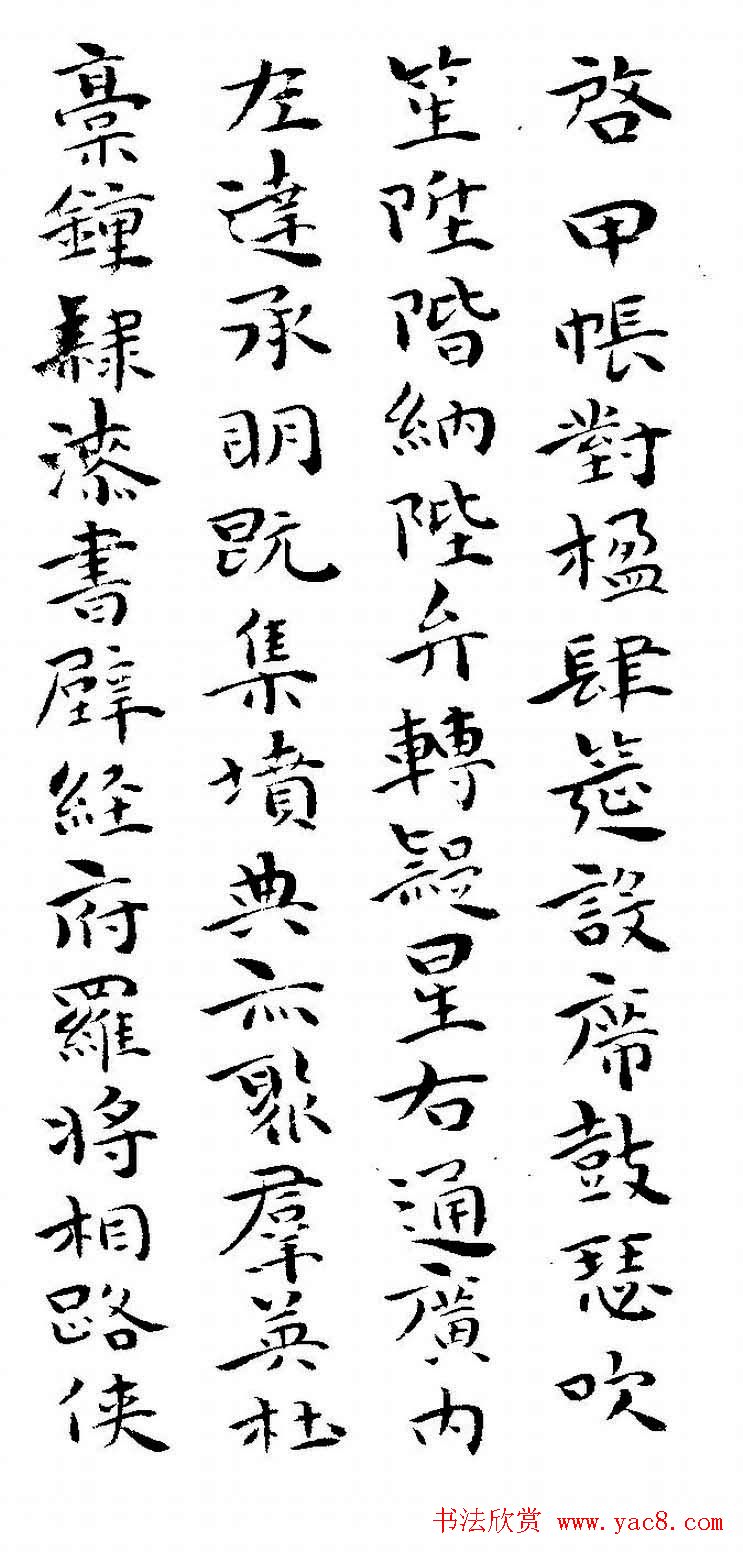 啓甲帳對楹肆筵設席鼓瑟吹
笙陞階納陛弁轉疑星右通廣内
左達承明既集墳典亦聚羣英杜
稾鍾隸漆書壁經府羅將相路俠
书法欣赏 www.yac8.com